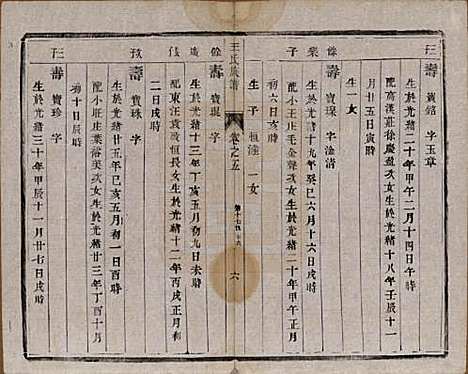 壬
壽 寶銘 字玉章
生於光緒二十年甲午二月十四日午時
配高漢莊徐慶盈次女生於光緒十八年壬辰十一
月廿五日寅時
生一女
餘
業
子
壽 寶琛 字淦清
生於光緒十九年癸巳六月十六日戌時
配小王庄毛金聲次女生於光緒二十年甲午正月
初六日亥時
生子 恒達 一女
王氏族譜
卷之五
六
餘
造
伎
壽 寶琨 字
生於光緒十三年丁亥五月初九日未時
配東汪袁成恒長女生於光緒十二年丙戌正月初
二日戌時
孜
壽 寶珠 字
生於光緒廿五年己亥五月初一日酉時
配小莊庄葉裕癸次女生於光緒廿三年丁酉十月
初十日辰時
玨
壽 寶珍 字
生於光緒三十年甲辰十一月廿七日戌時